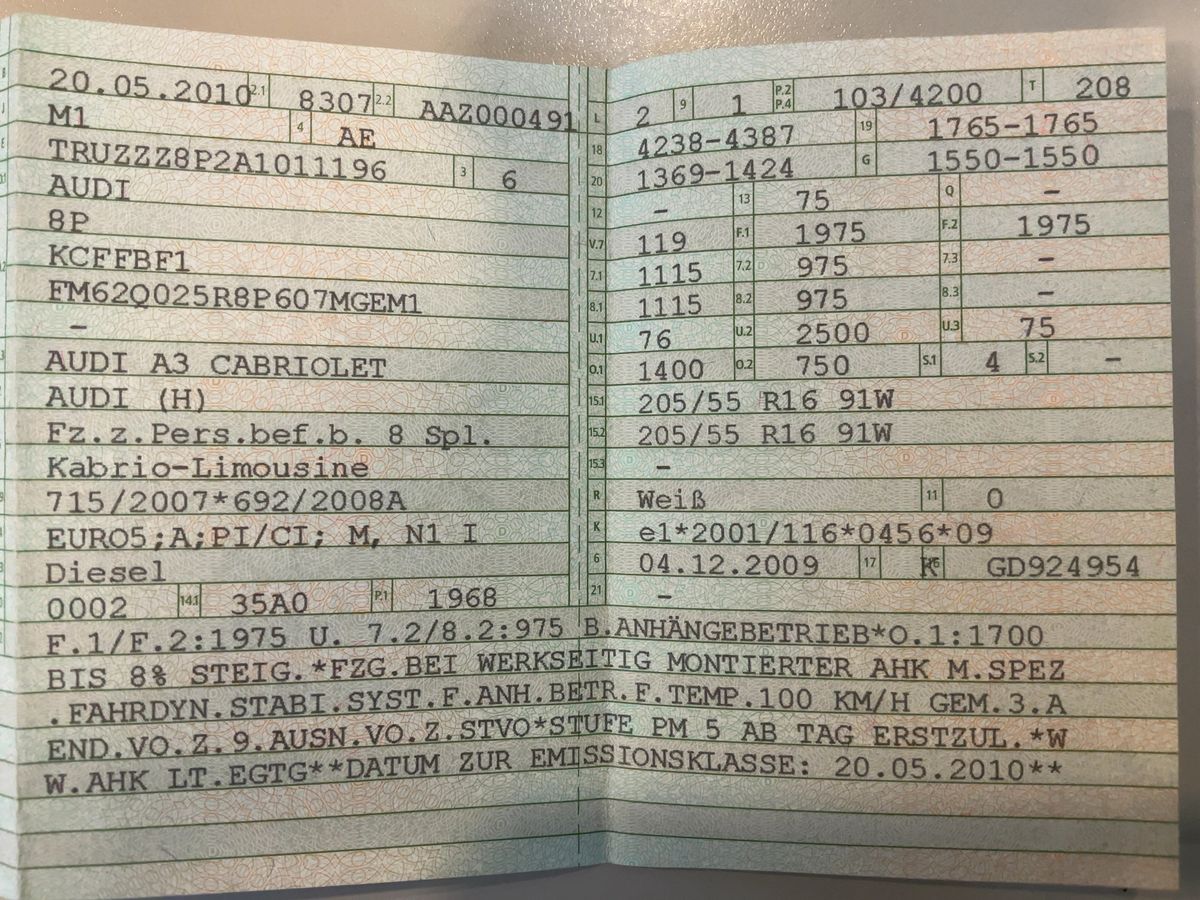 B 20.05.2010 2.1 8307 2.2 AAZ000491
J M1 4 AE
E TRUZZZ8P2A1011196 3 6
AUDI
8P
KCFFBF1
FM62Q025R8P607MGEM1
–
AUDI A3 CABRIOLET
AUDI (H)
Fz.z.Pers.bef.b. 8 Spl.
Kabrio-Limousine
715/2007*692/2008A
EURO5;A;PI/CI; M, N1 I
Diesel
0002 14.1 35A0 P.1 1968
L 2 9 1 P.2 P.4 103/4200 T 208
18 4238-4387 19 1765-1765
20 1369-1424 G 1550-1550
12 – 13 75 Q –
V.7 119 F.1 1975 F.2 1975
7.1 1115 7.2 975 7.3 –
8.1 1115 8.2 975 8.3 –
U.1 76 U.2 2500 U.3 75
O.1 1400 O.2 750 S.1 4 S.2 –
15.1 205/55 R16 91W
15.2 205/55 R16 91W
15.3 –
R Weiß 11 0
K e1*2001/116*0456*09
6 04.12.2009 17 K 16 GD924954
21 –
F.1/F.2:1975 U. 7.2/8.2:975 B.ANHÄNGEBETRIEB*O.1:1700
BIS 8% STEIG.*FZG.BEI WERKSEITIG MONTIERTER AHK M.SPEZ
.FAHRDYN.STABI.SYST.F.ANH.BETR.F.TEMP.100 KM/H GEM.3.A
END.VO.Z.9.AUSN.VO.Z.STVO*STUFE PM 5 AB TAG ERSTZUL.*W
W.AHK LT.EGTG**DATUM ZUR EMISSIONSKLASSE: 20.05.2010**